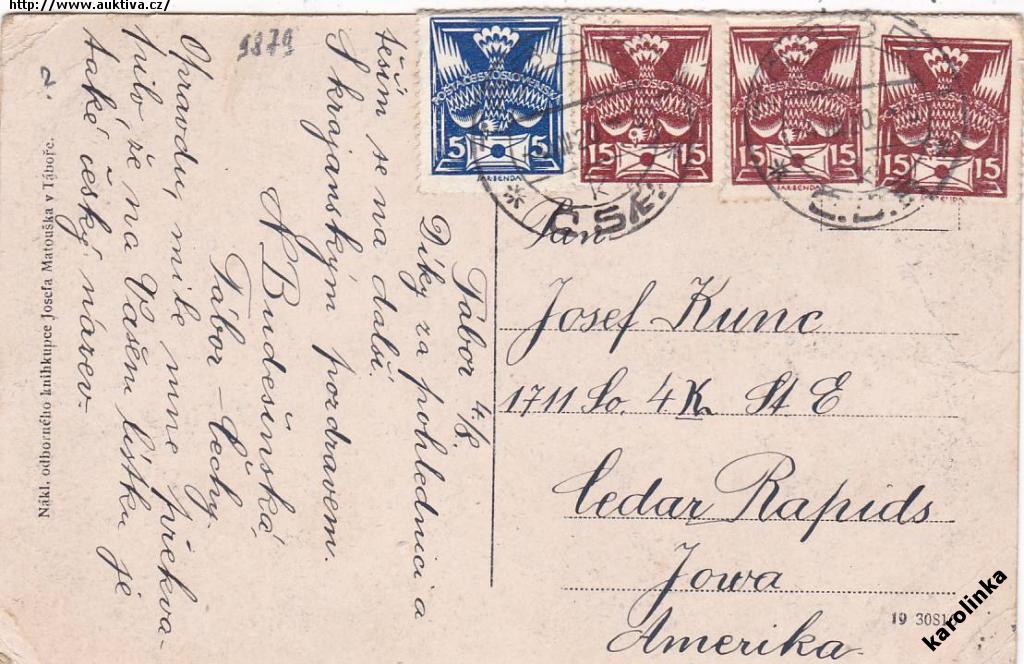 http://www.auktiva.cz/
9879
2.
Tábor 4./8.
Díky za pohlednici a
těším se na další.
S krajanským pozdravem.
A Budešínská
Tábor - Čechy.
Opravdu, mile mne překva-
pilo že na Vašem lístku je
také český název.
Nákl. odborného knihkupce Josefa Matouška v Táboře.
POŠTA ČESKOSLOVENSKÁ
5 5
JAR. BENDA
POŠTA ČESKOSLOVENSKÁ
15 15
JAR. BENDA
POŠTA ČESKOSLOVENSKÁ
15 15
JAR. BENDA
POŠTA ČESKOSLOVENSKÁ
15 15
Č.S.R.
Pan
Josef Kunc
1711 So. 4th St E
Cedar Rapids
Jowa
Amerika.
19
karolinka